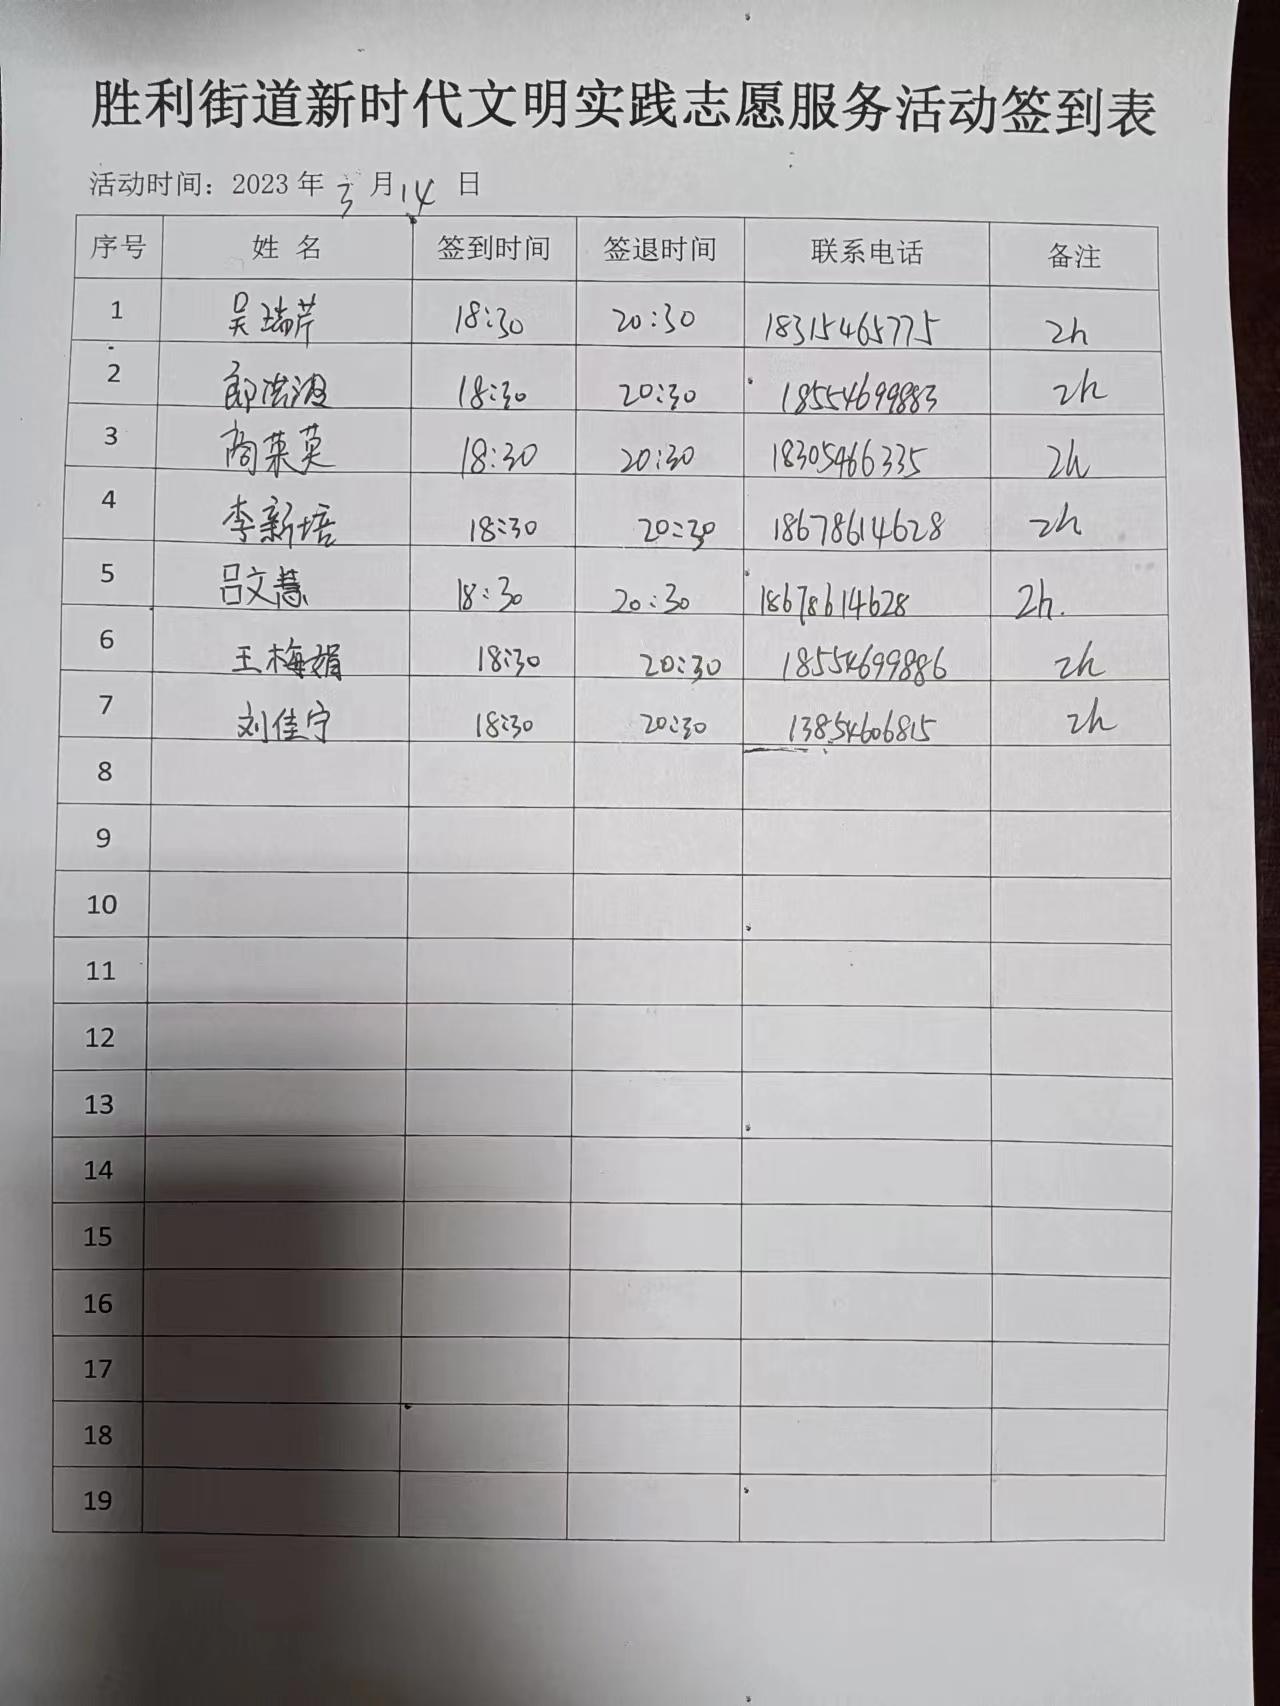 胜利街道新时代文明实践志愿服务活动签到表
活动时间：2023 年 3 月 14 日
序号 姓 名 签到时间 签退时间 联系电话 备注
1 吴瑞芹 18:30 20:30 18315465775 2h
2 郎洪波 18:30 20:30 18554699883 2h
3 商荣英 18:30 20:30 18305466335 2h
4 李新培 18:30 20:30 18678614628 2h
5 吕文慧 18:30 20:30 18678614628 2h.
6 王梅娟 18:30 20:30 18554699886 2h
7 刘佳宁 18:30 20:30 13854606815 2h
8
9
10
11
12
13
14
15
16
17
18
19